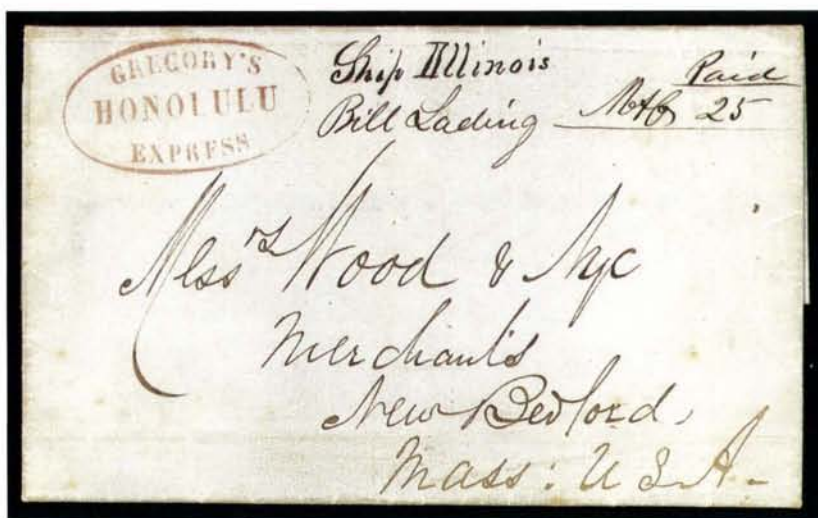 GREGORY'S
HONOLULU
EXPRESS
Ship Illinois
Bill Lading
Paid
25
Mess rs Wood & Nye
Merchants
New Bedford,
Mass: U S A.